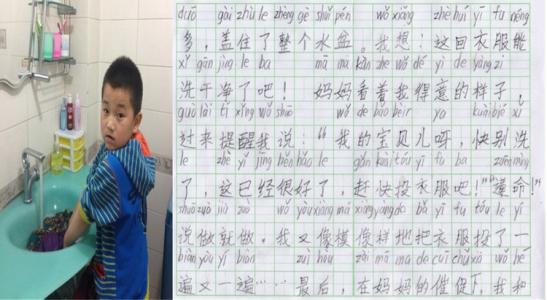 duō gài zhù le zhěng gè shuǐ pén wǒ xiǎng zhè huí yī fu néng
多，盖住了整个水盆。我想：这回衣服能
xǐ gān jìng le ba mā ma kàn zhe wǒ dé yì de yàng zi
洗干净了吧！妈妈看着我得意的样子，
guò lái tí xǐng wǒ shuō wǒ de bǎo bèir ya kuài bié xǐ
过来提醒我说：“我的宝贝儿呀，快别洗
le zhè yǐ jīng hěn hǎo le gǎn kuài tóu yī fu ba zūn mìng
了，这已经很好了，赶快投衣服吧！”“遵命！”
shuō zuò jiù zuò wǒ yòu xiàng mú xiàng yàng de bǎ yī fu tóu le yī
说做就做。我又像模像样地把衣服投了一
biàn yòu yī biàn zuì hòu zài mā ma de cuī cù xià wǒ hé
遍又一遍……最后，在妈妈的催促下，我和